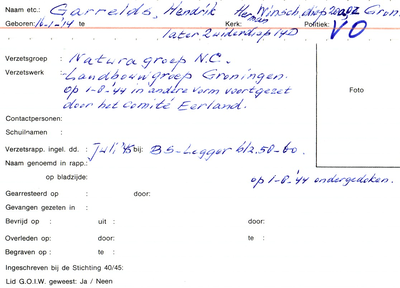 Naam etc.: Garrelds, Hendrik Herman Winschoterdiep Gron.
Geboren: 16-1-'14 te Kerk: Politiek: VO
later Zuiderdiep 140
Verzetsgroep : Natura groep N.C.
Verzetswerk : Landbouwgroep Groningen.
op 1-8-'44 in andere vorm voortgezet
door het Comité Eerland.
Foto
Contactpersonen:
Schuilnamen :
Verzetsrapp. ingel. dd. : Juli '45 bij: BS-Legger blz. 50-60.
Naam genoemd in rapp.:
op bladzijde: op 1-8-'44 ondergedoken.
Gearresteerd op : door:
Gevangen gezeten in :
Bevrijd op : uit : door:
Overleden op: door: te :
Begraven op : te :
Ingeschreven bij de Stichting 40/45:
Lid G.O.I.W. geweest: Ja / Neen